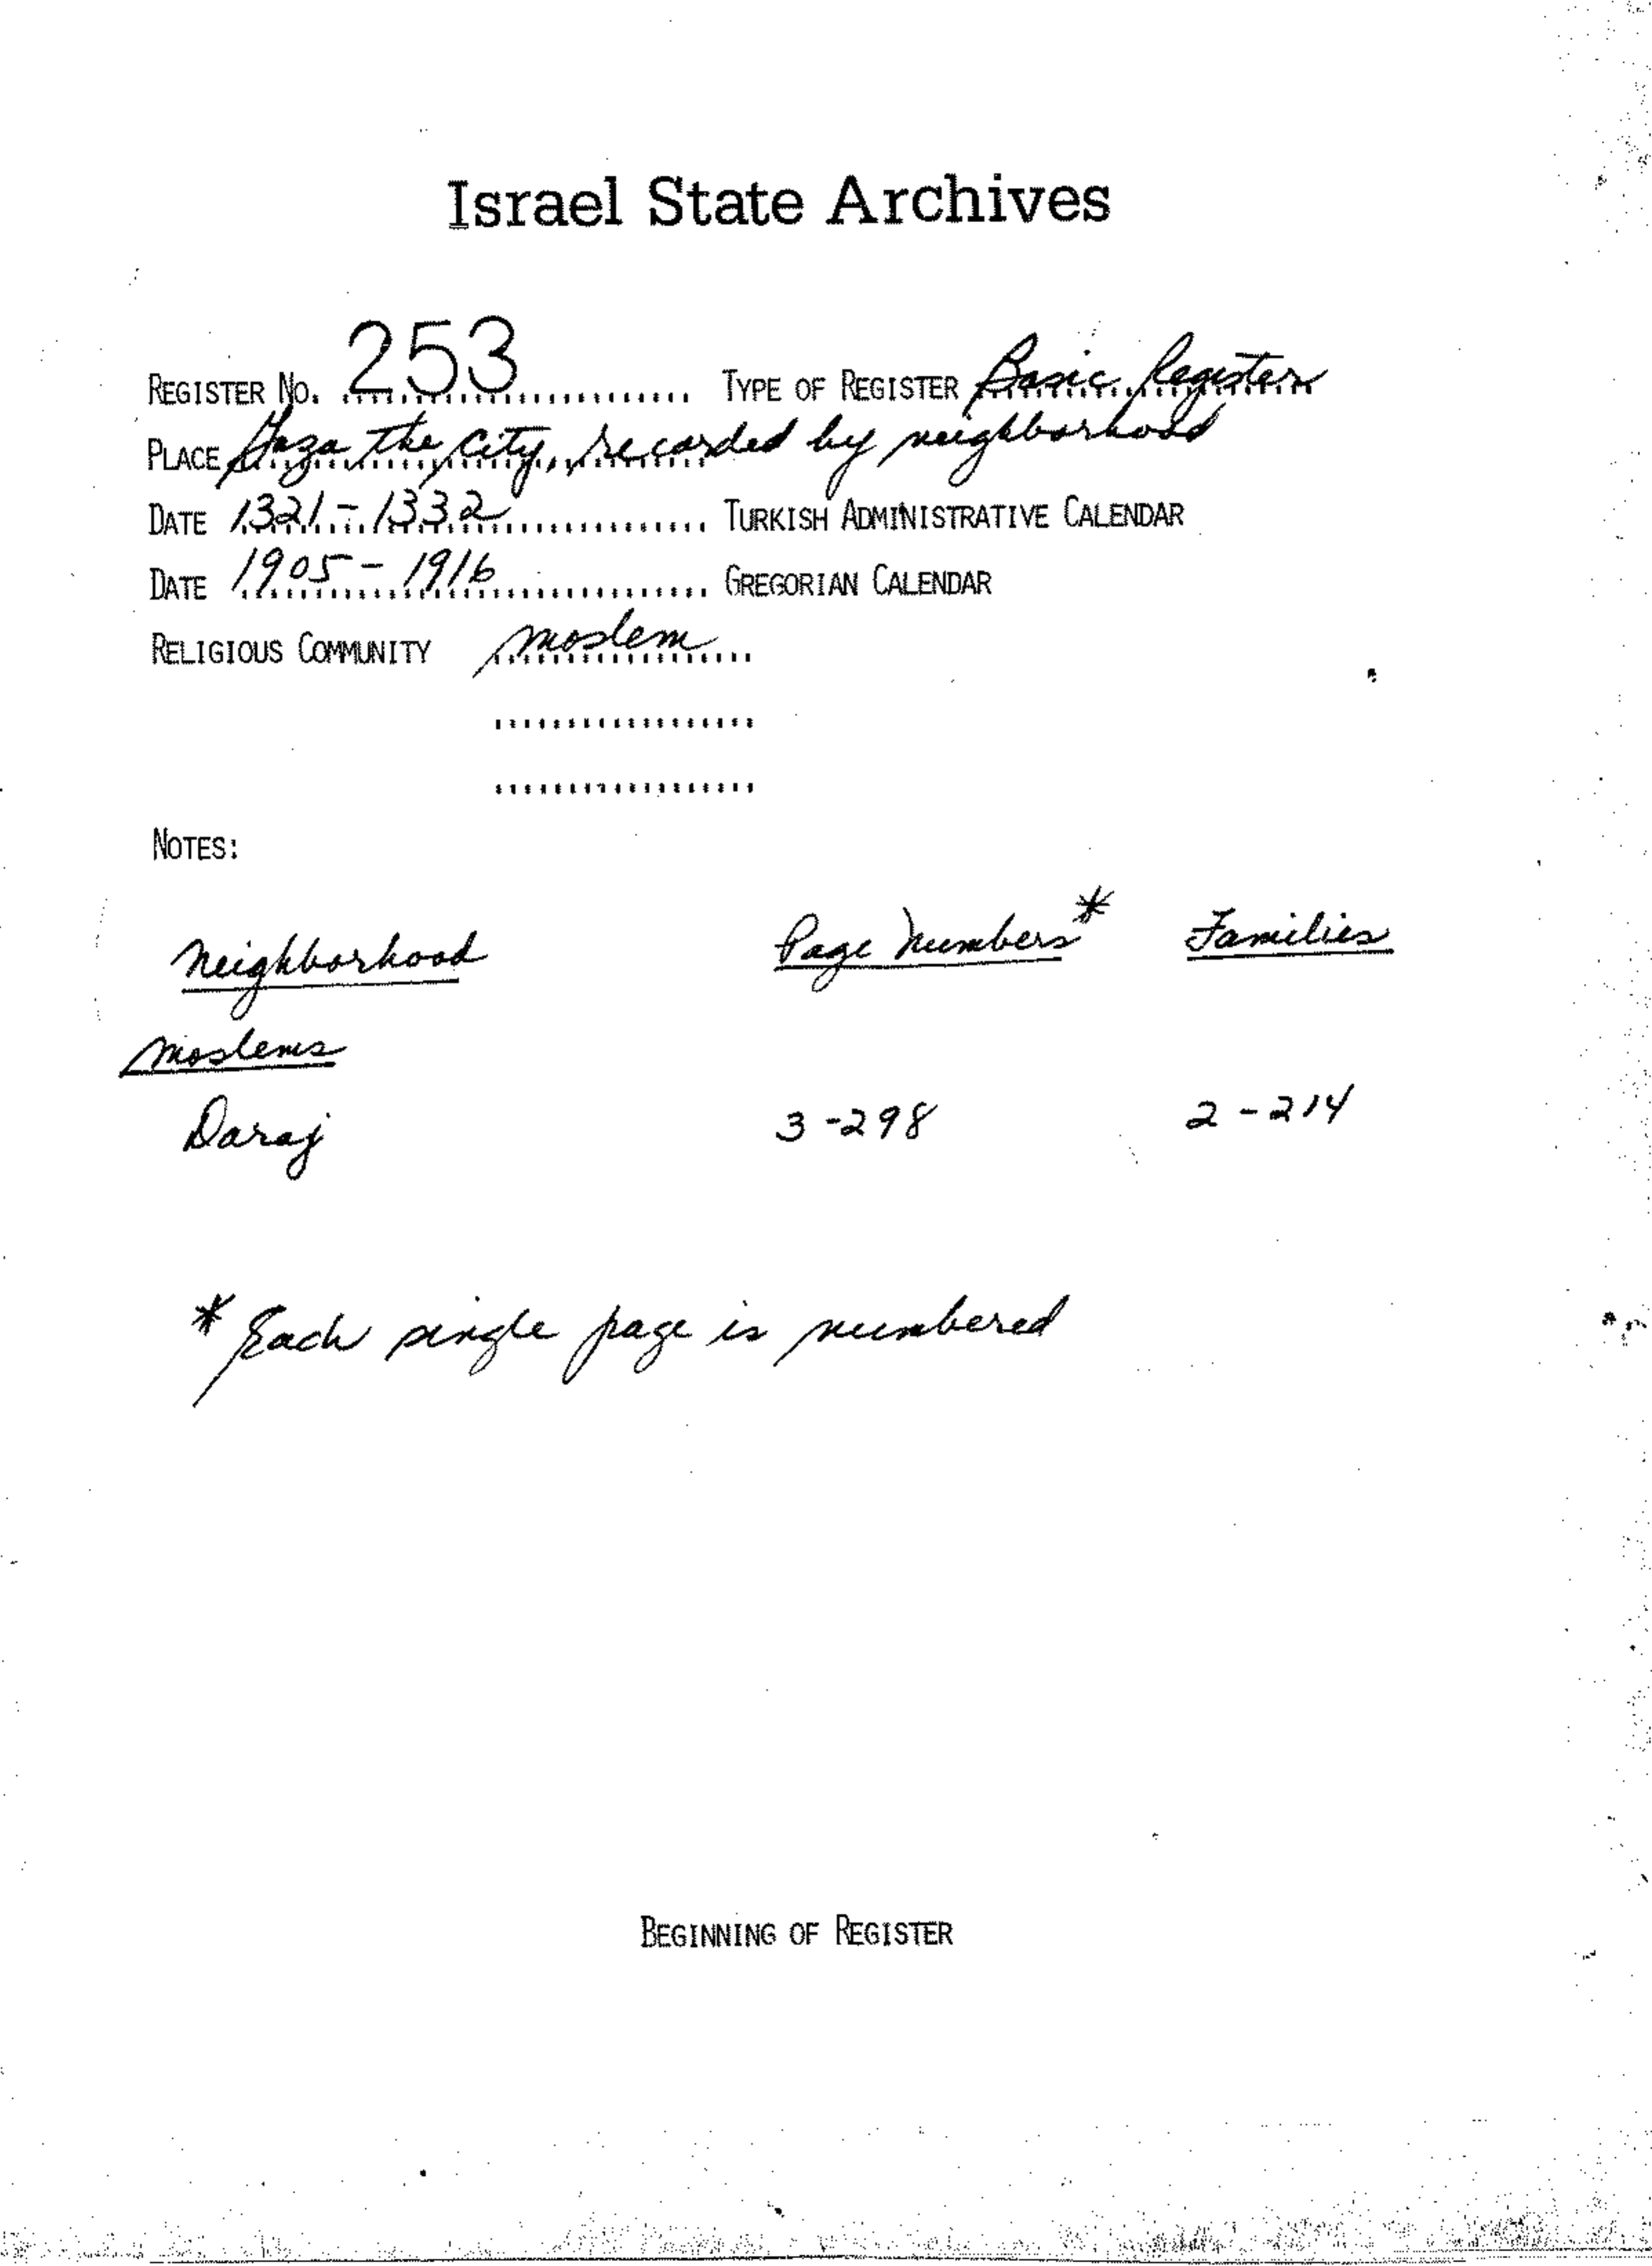 Israel State Archives
REGISTER NO. 253 TYPE OF REGISTER Basic Register
PLACE Gaza the city, recorded by neighborhood
DATE 1321-1332 TURKISH ADMINISTRATIVE CALENDAR
DATE 1905-1916 GREGORIAN CALENDAR
RELIGIOUS COMMUNITY moslem
NOTES:
Neighborhood Page Numbers* Families
Moslems
Daraj 3-298 2-214
* Each single page is numbered
BEGINNING OF REGISTER